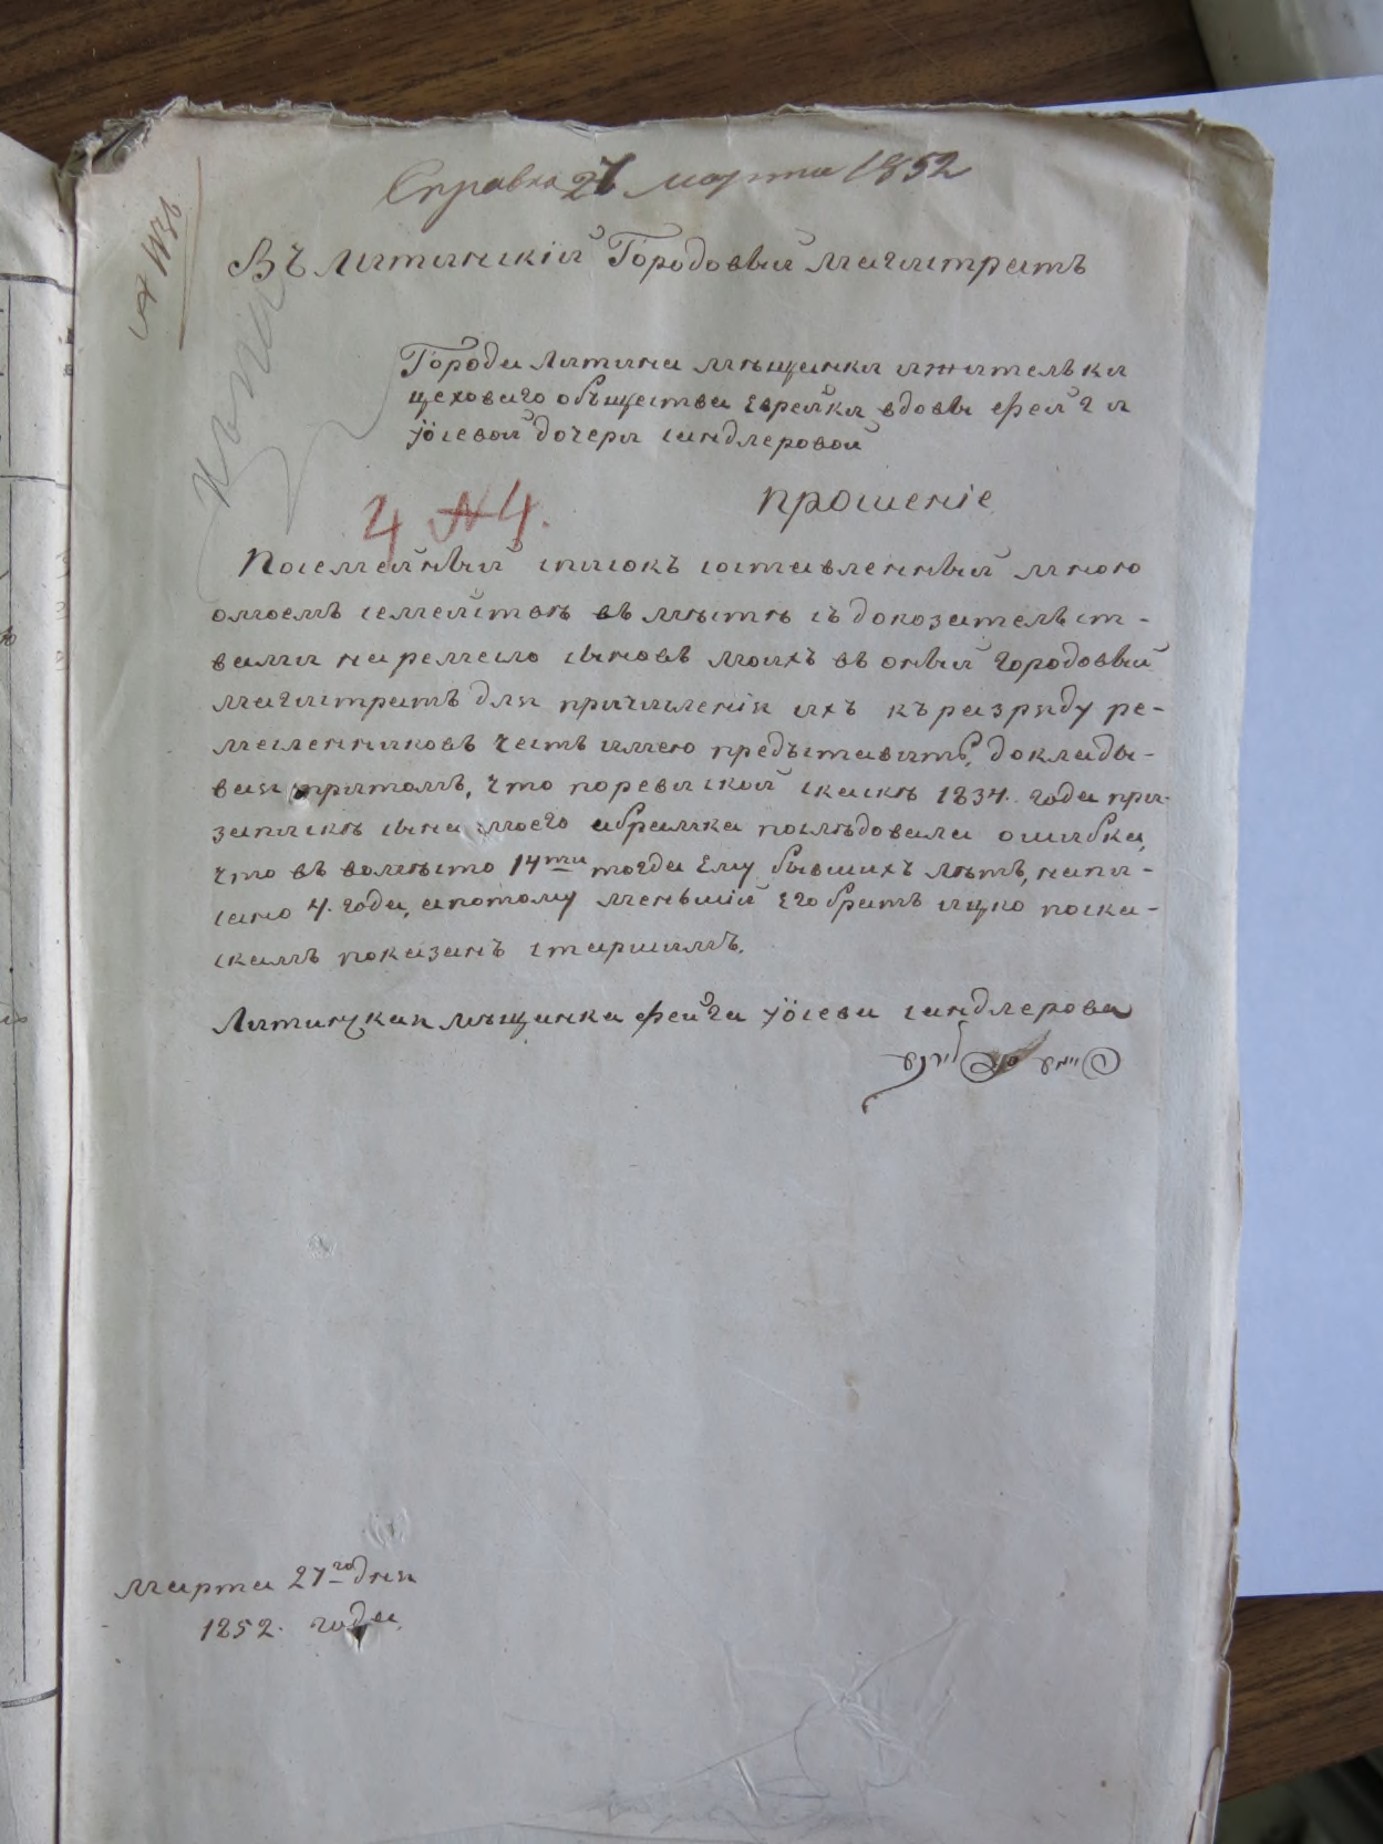 Справка 27 марта 1852
Въ Литинскій Городовый магистратъ
Города Литина мѣщанки и жительки
цеховаго объщества Еврейки вдовы Фейги
Іосевой дочери Сандлеровой
прошеніе
4 №4.
Посемейный списокъ составленный мною
омоемъ семействѣ въ мѣстѣ съ доказательст-
вами на ремесло сыновъ моихъ въ оный городовый
магистратъ для причисленія ихъ къ разряду ре-
месленниковъ честь имею предъставить, доклады-
вая притомъ, что поревиской скаскѣ 1834. года при-
запискѣ сына моего абрамка послѣдовала ошибка,
что въ волмѣсто 14ти тогда Ему бывшихъ лѣтъ, напи-
сано 4. года, апотому меньшій Его братъ ицко поска-
скамъ показанъ старшимъ.
Литинцкая мѣщанка Фейга Іосева Сандлерова
марта 27го дня
1852. года